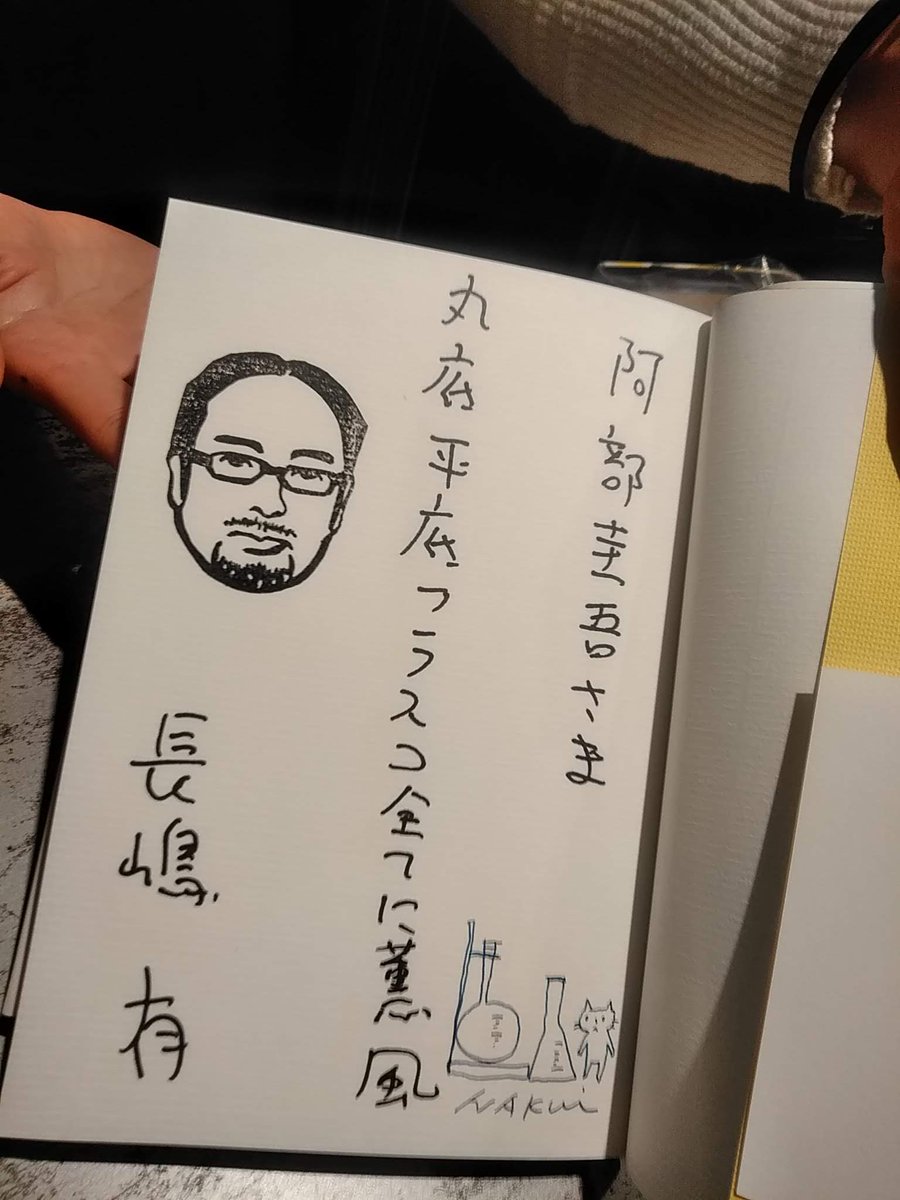 阿部圭吾さま
丸底平底フラスコ全てに薫風
長嶋有
NAKUI